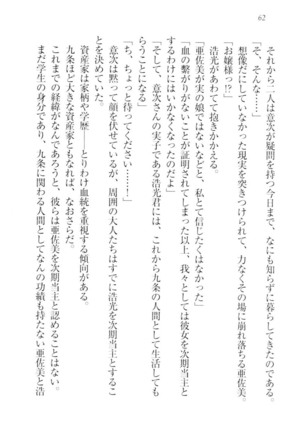 62
それから二人は意次が疑問を持つ今日まで、なにも知らずに暮らしてきたのである。
「そ、そんな……」
想像だにしていなかった現実を突きつけられて、力なくその場に崩れ落ちる亜佐美。
「お嬢様!?」
浩光があわてて抱きかかえる。
「亜佐美が実の娘ではないなどと、私とて信じたくはなかった」
「血の繋がりがないことが証明されてしまった以上、我々としては彼女を次期当主と
するわけにはいかなくなったのだよ」
「そして、意次さんの実子である浩光君には、これから九条の人間として生活しても
らうことになる」
「ち、ちょっと待ってください!」
意次は黙って顔を伏せているが、周囲の大人たちはすでに浩光を次期当主とするこ
とを決めていた。
資産家は家柄や学歴――とりわけ血統を重視する傾向がある。
九条ほど大きな資産家ともなれば、なおさらだ。
これまでの経緯がなんであろうと、彼らは亜佐美を次期当主と認めることはない。
まだ学生の身分であり、九条に関わる人間としてなんの功績も持たない亜佐美と浩